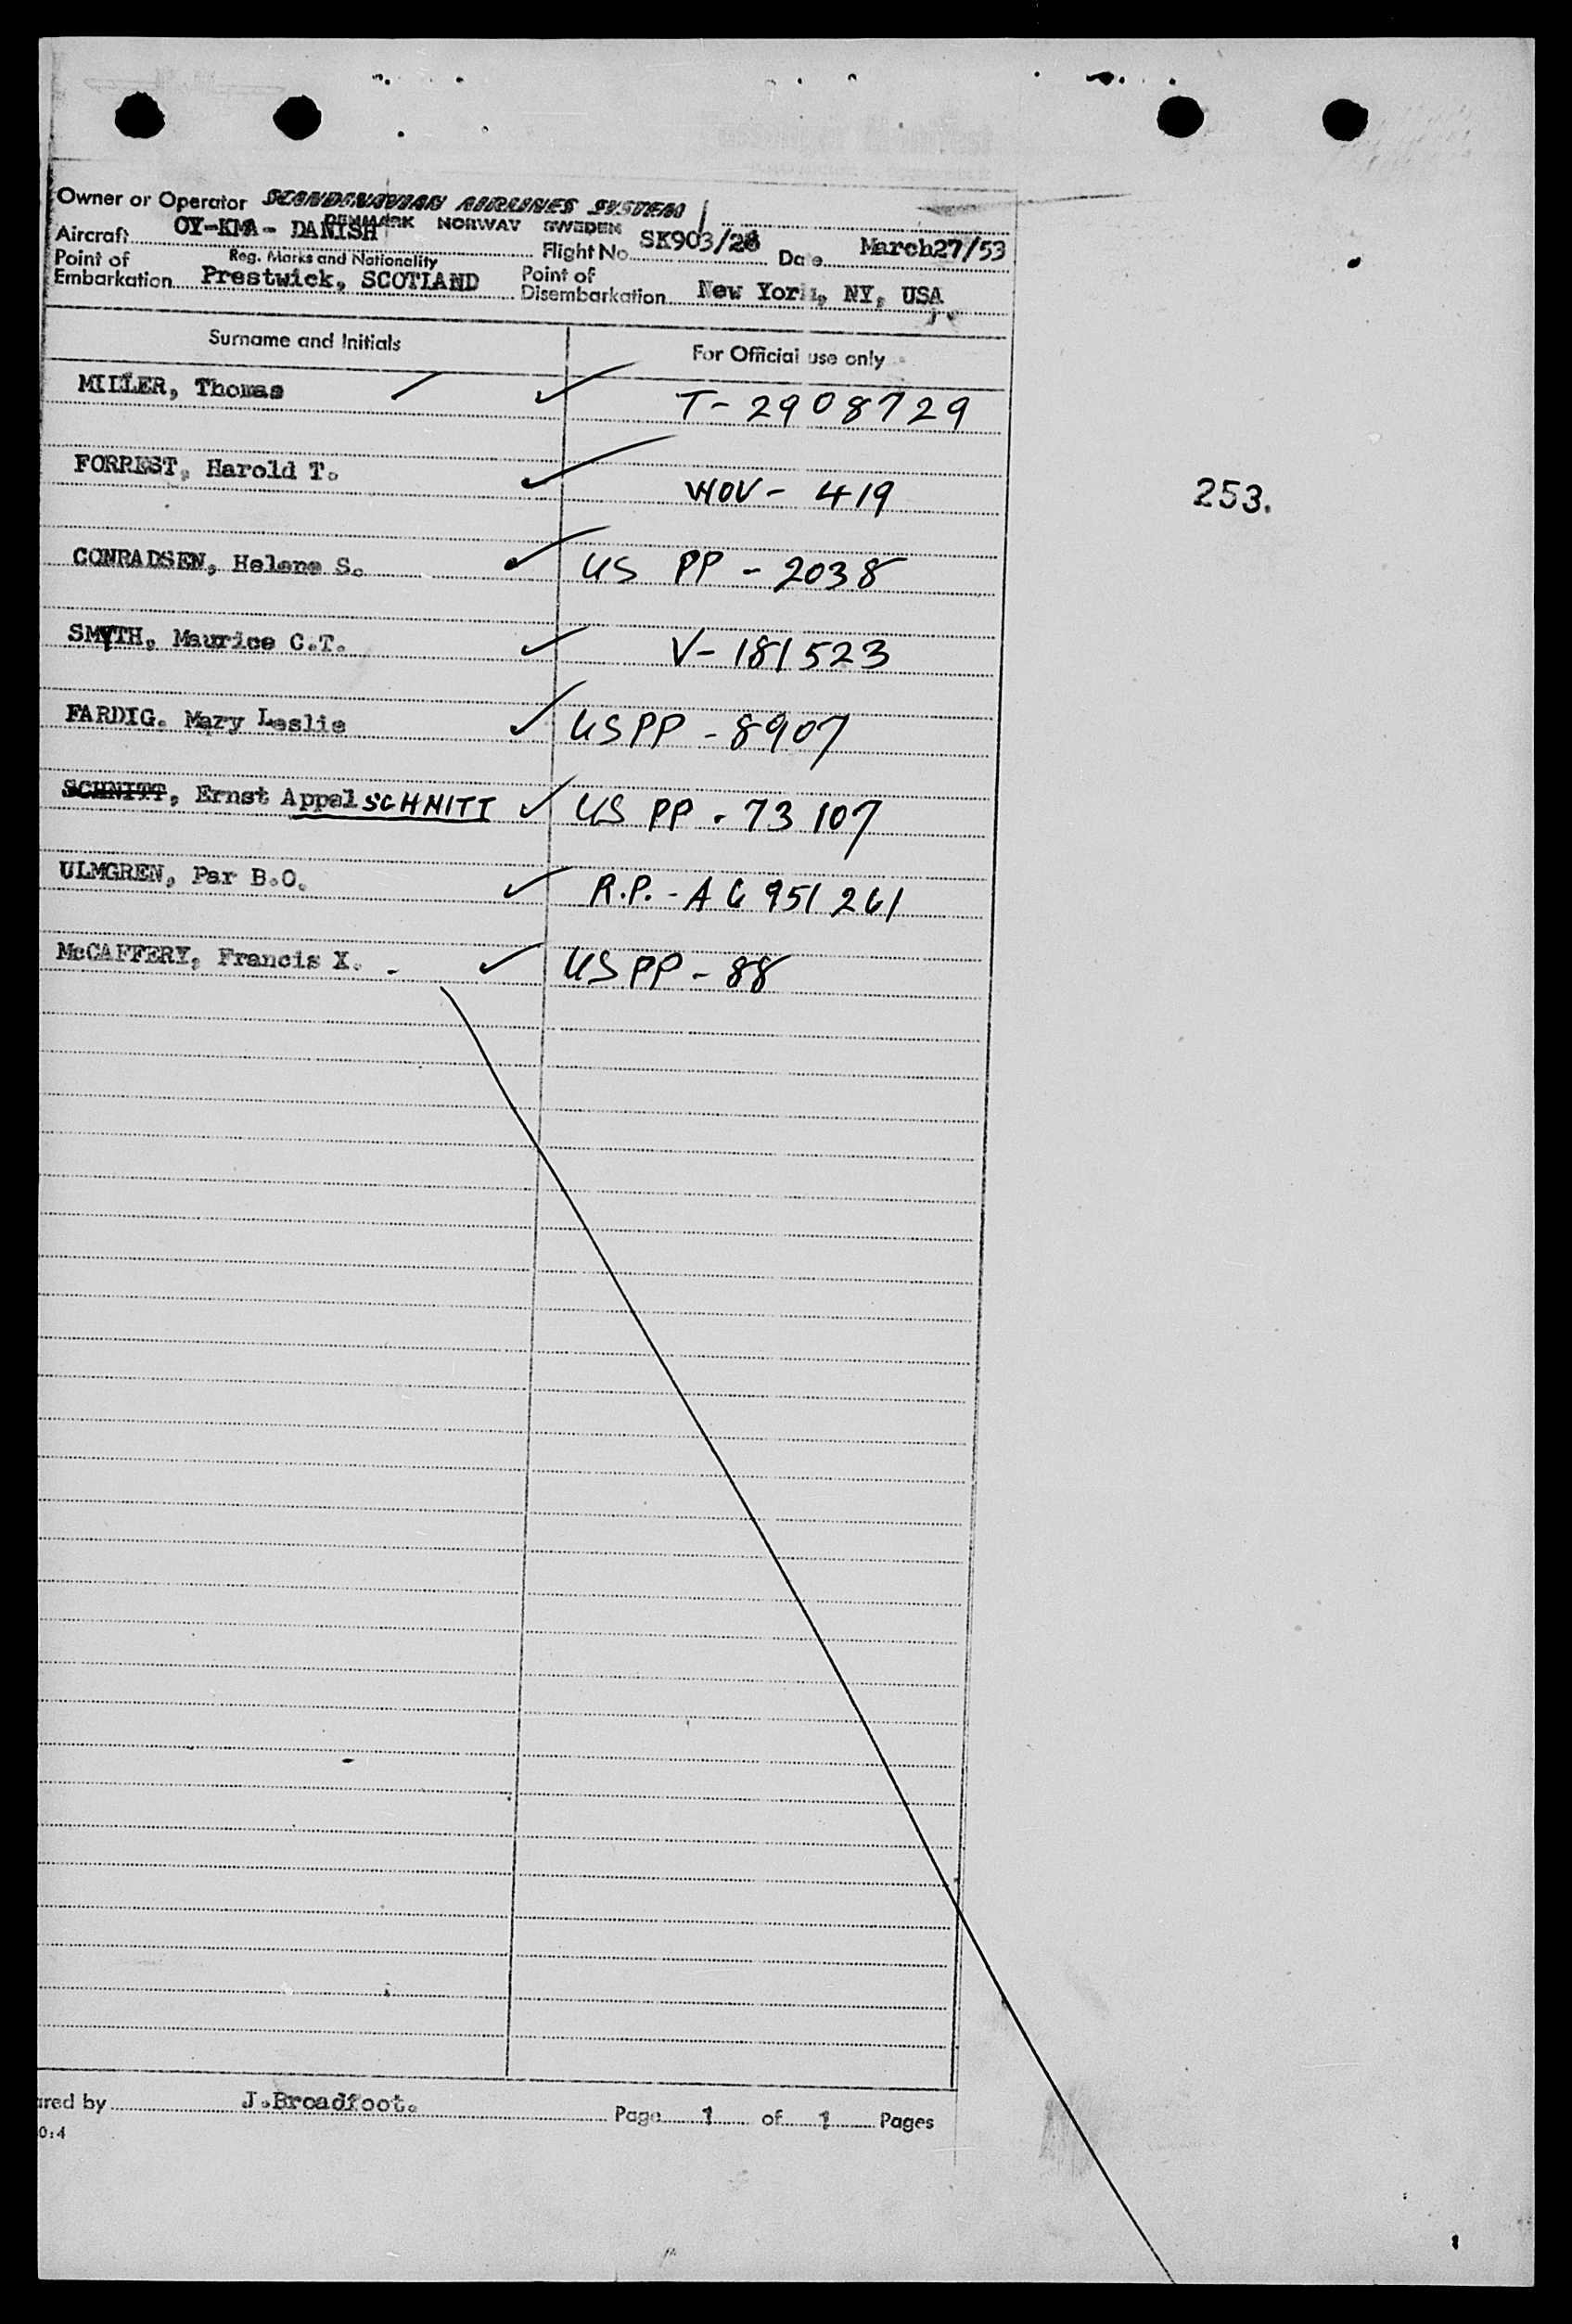 Owner or Operator SCANDINAVIAN AIRLINES SYSTEM
DENMARK NORWAY SWEDEN
Aircraft OY-KMA - DANISH Flight No SK903/26 Date March27/53
Reg. Marks and Nationality
Point of Embarkation Prestwick, SCOTLAND Point of Disembarkation New York, NY, USA
Surname and Initials For Official use only
MILLER, Thomas T-2908729
FORREST, Harold T. WOV - 419
253.
CONRADSEN, Helene S. US PP - 2038
SMYTH, Maurice C.T. V-181523
FARDIG. Mary Leslie US PP - 8907
SCHNITT, Ernst Appel SCHNITT US PP - 73107
ULMGREN, Par B.O. R.P. - A6951261
McCAFFERY, Francis X. - US PP - 88
ared by J.Broadfoot. Page 1 of 1 Pages
0:4